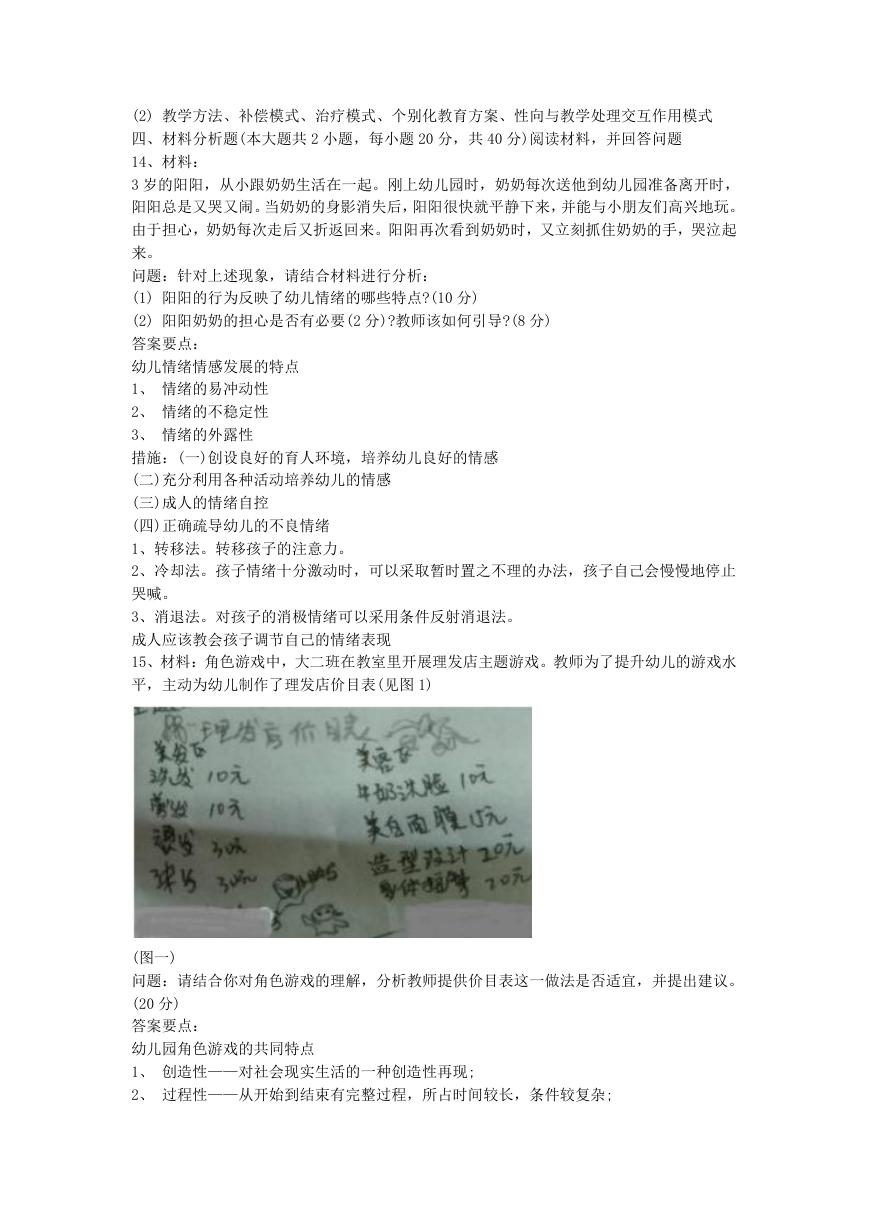 (2) 教学方法、补偿模式、治疗模式、个别化教育方案、性向与教学处理交互作用模式
四、材料分析题(本大题共 2 小题，每小题 20 分，共 40 分)阅读材料，并回答问题
14、材料：
3 岁的阳阳，从小跟奶奶生活在一起。刚上幼儿园时，奶奶每次送他到幼儿园准备离开时，
阳阳总是又哭又闹。当奶奶的身影消失后，阳阳很快就平静下来，并能与小朋友们高兴地玩。
由于担心，奶奶每次走后又折返回来。阳阳再次看到奶奶时，又立刻抓住奶奶的手，哭泣起
来。
问题：针对上述现象，请结合材料进行分析：
(1) 阳阳的行为反映了幼儿情绪的哪些特点?(10 分)
(2) 阳阳奶奶的担心是否有必要(2 分)?教师该如何引导?(8 分)
答案要点：
幼儿情绪情感发展的特点
1、 情绪的易冲动性
2、 情绪的不稳定性
3、 情绪的外露性
措施：(一)创设良好的育人环境，培养幼儿良好的情感
(二)充分利用各种活动培养幼儿的情感
(三)成人的情绪自控
(四)正确疏导幼儿的不良情绪
1、转移法。转移孩子的注意力。
2、冷却法。孩子情绪十分激动时，可以采取暂时置之不理的办法，孩子自己会慢慢地停止
哭喊。
3、消退法。对孩子的消极情绪可以采用条件反射消退法。
成人应该教会孩子调节自己的情绪表现
15、材料：角色游戏中，大二班在教室里开展理发店主题游戏。教师为了提升幼儿的游戏水
平，主动为幼儿制作了理发店价目表(见图 1)
理发店价目表
美发区
洗发 10元
剪发 10元
烫发 30元
染发 30元
美容区
牛奶洗脸 10元
美白面膜 15元
造型设计 20元
20元
(图一)
问题：请结合你对角色游戏的理解，分析教师提供价目表这一做法是否适宜，并提出建议。
(20 分)
答案要点：
幼儿园角色游戏的共同特点
1、 创造性——对社会现实生活的一种创造性再现;
2、 过程性——从开始到结束有完整过程，所占时间较长，条件较复杂;